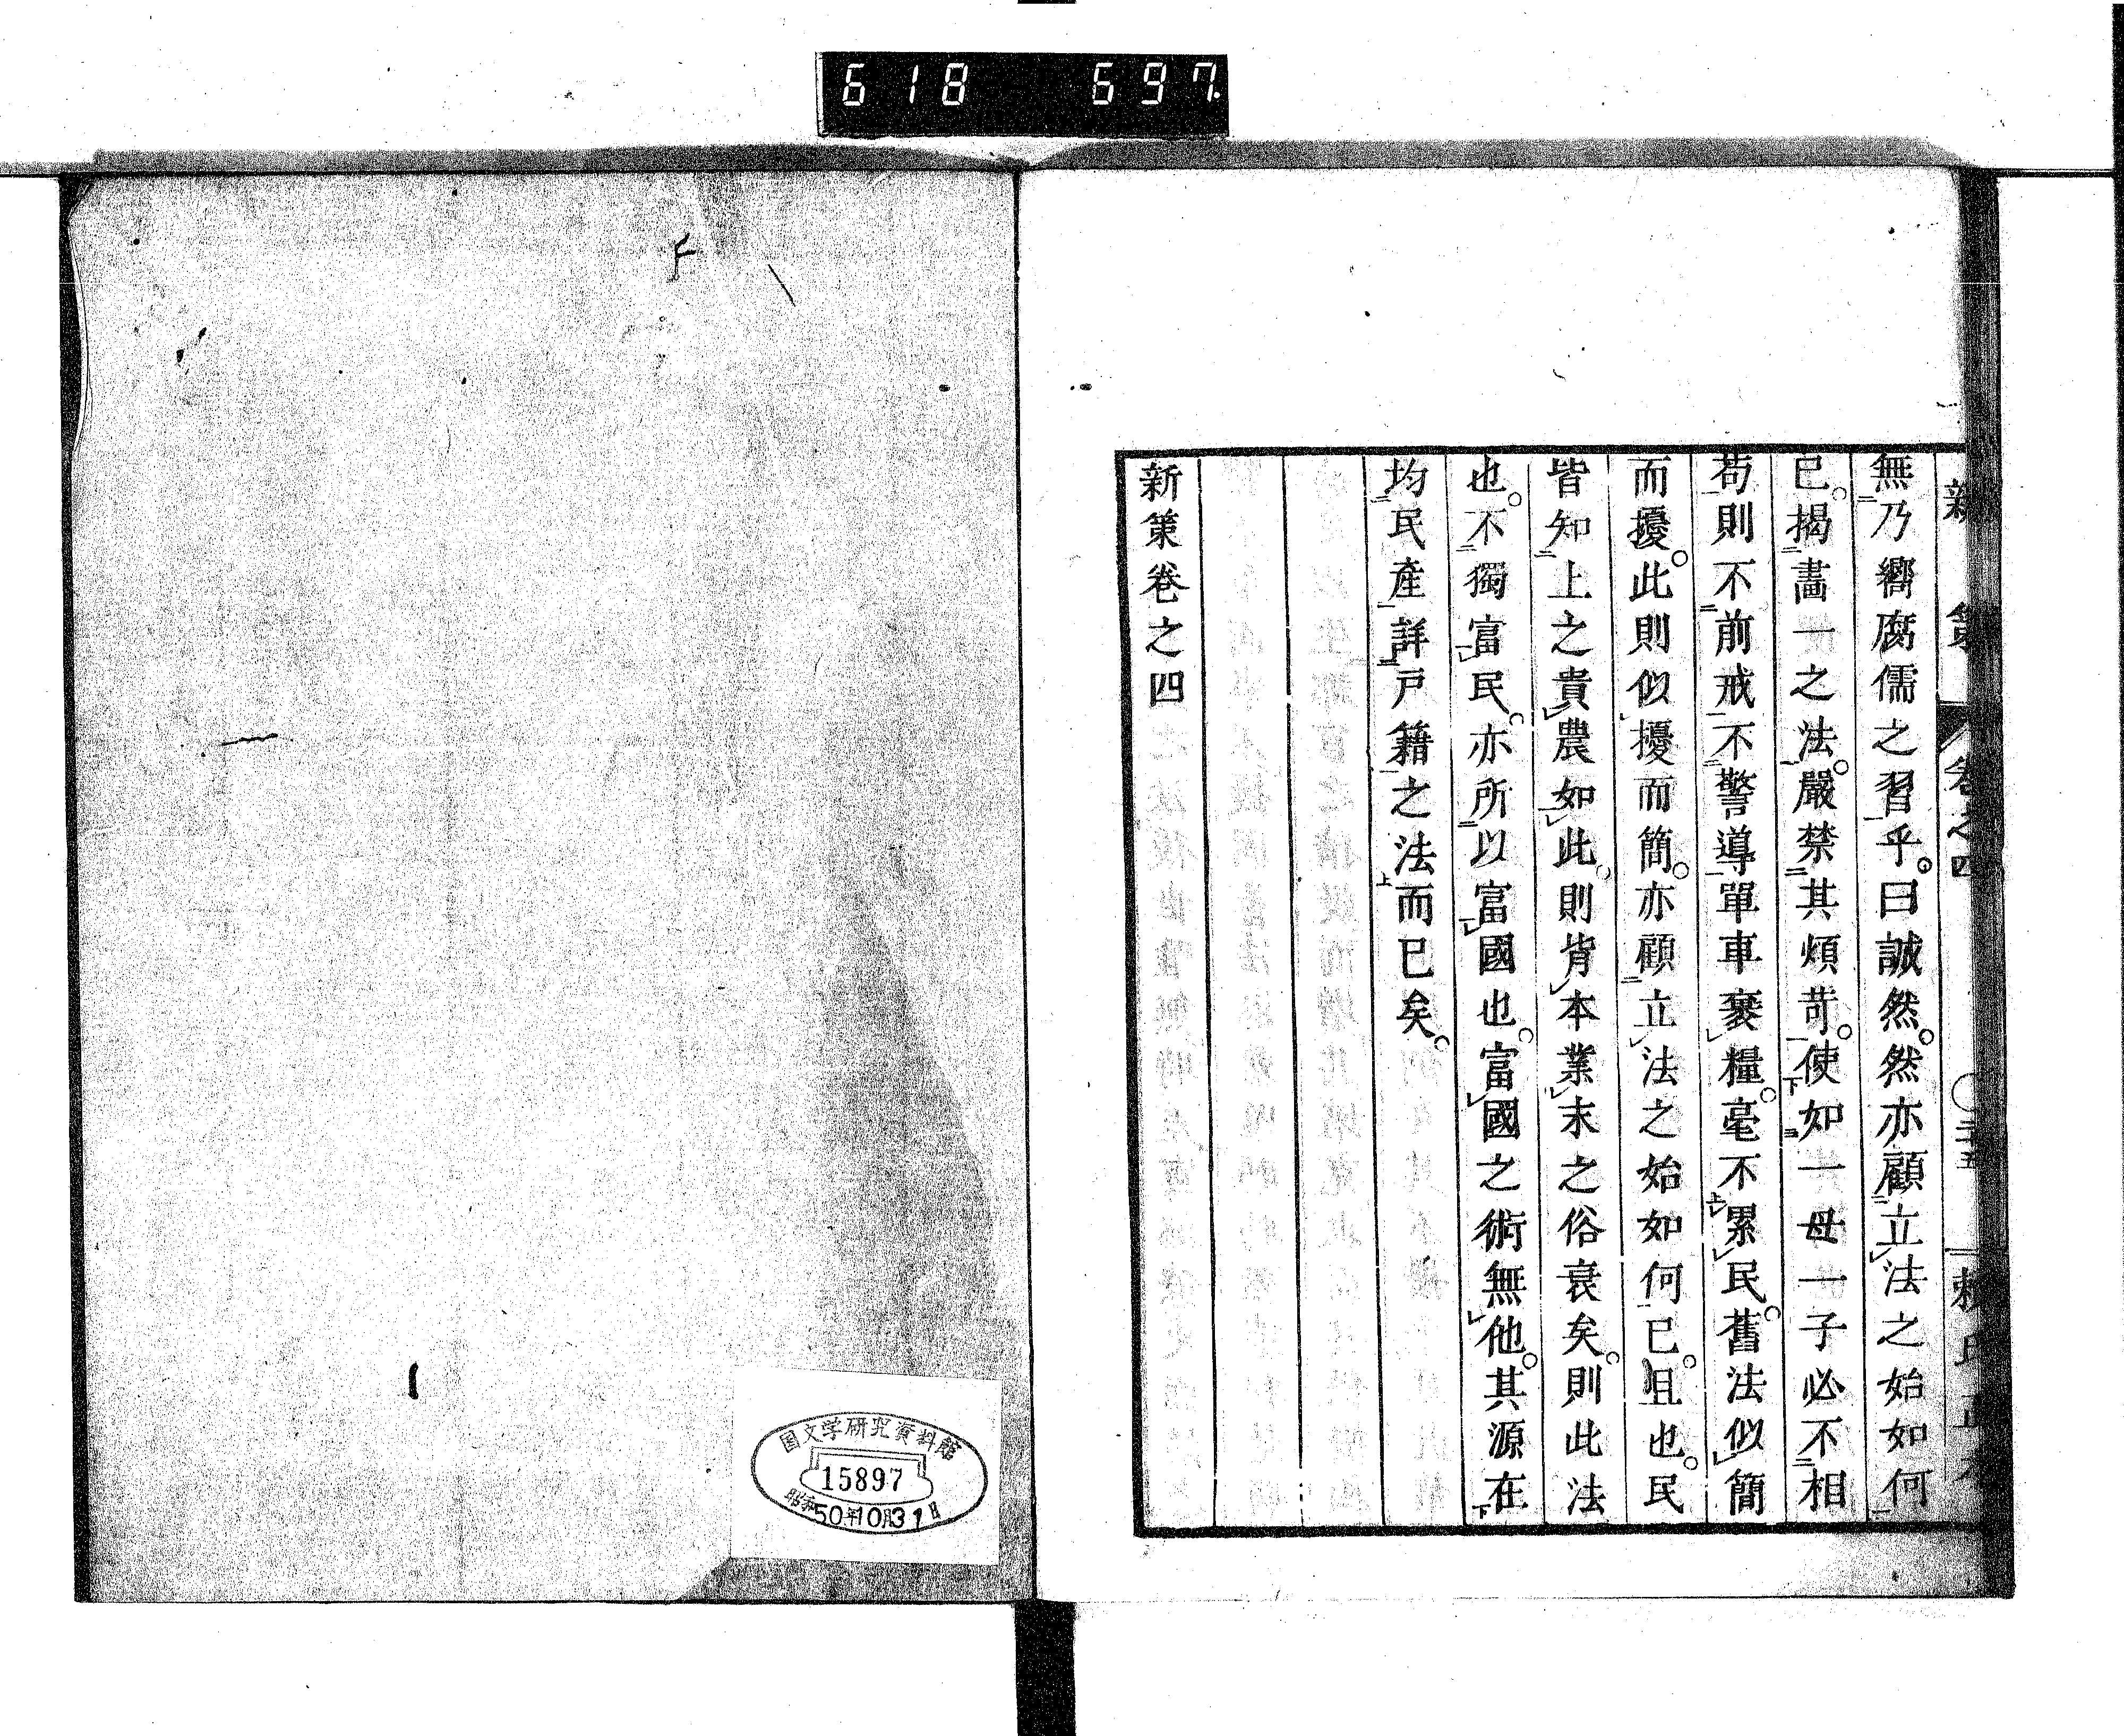 618 697.
新策 卷之四 二十五
無乃嚮腐儒之習乎。曰誠然。然亦顧立法之始如何
已。揭畫一之法。嚴禁其煩苛。使如一母一子必不相
苟則不前戒不警導單車褰糧。毫不累民。舊法似簡
而擾。此則似擾而簡。亦顧立法之始如何已。且也。民
皆知上之貴農如此。則背本業末之俗衰矣。則此法
也。不獨富民。亦所以富國也。富國之術無他。其源在
均民產詳戸籍之法而已矣。
新策卷之四
国文学研究資料館
15897
昭和50年10月31日